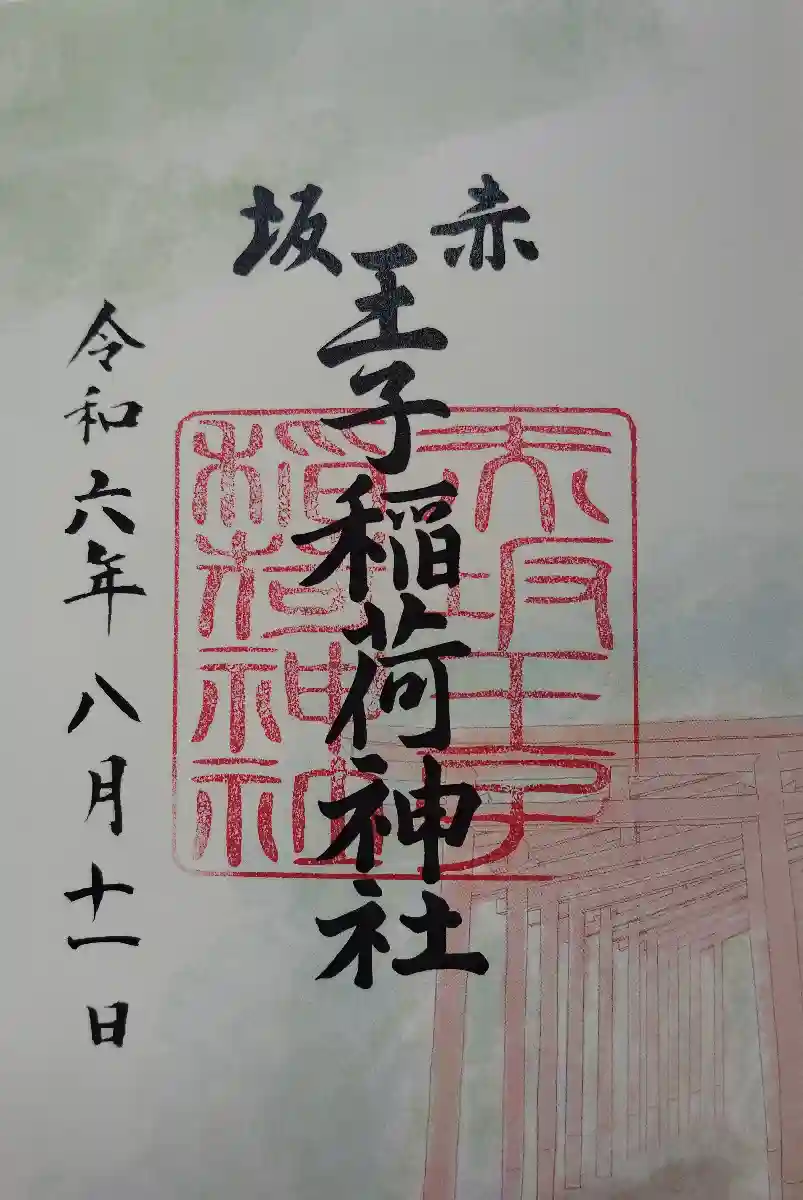 赤坂
王子稲荷神社
令和六年八月十一日
赤坂王子
稲荷神社